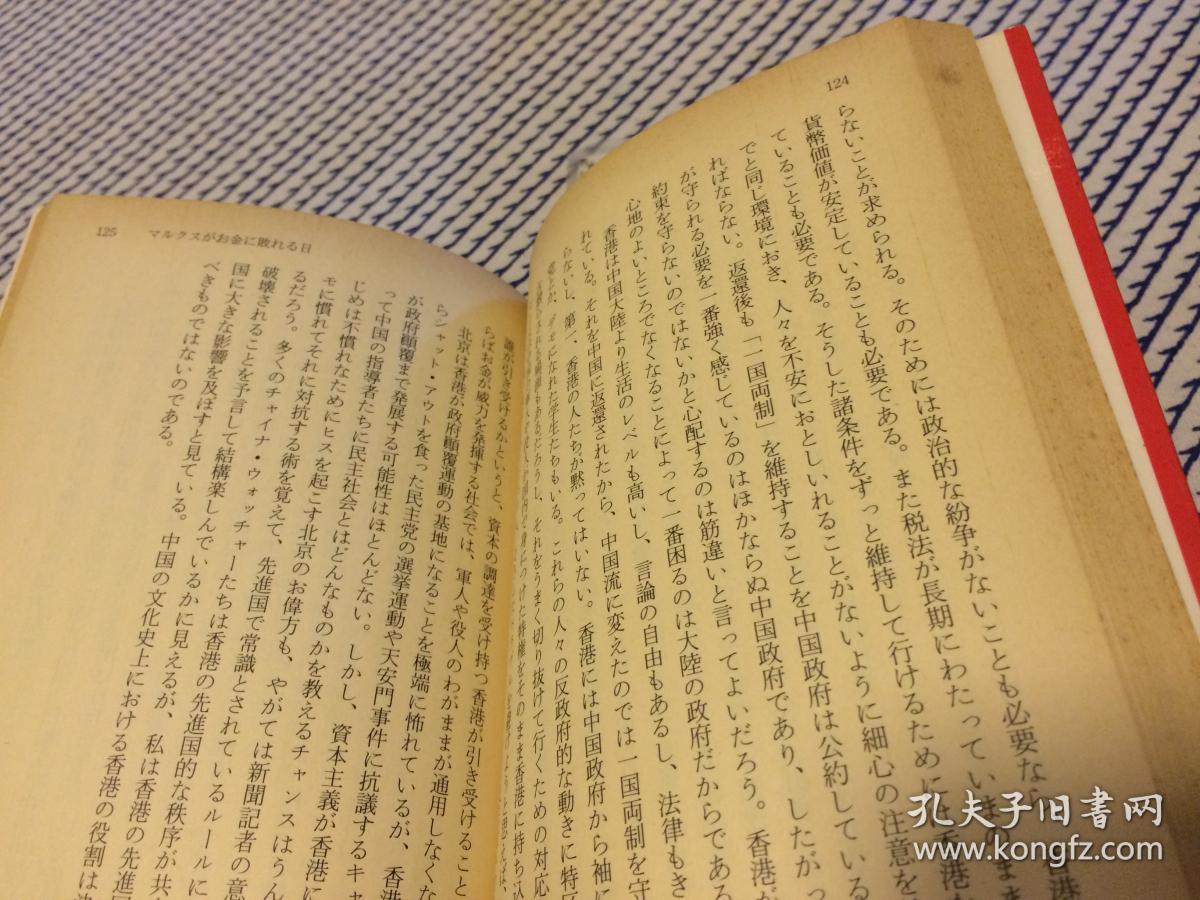 124
らないことが求められる。そのためには政治的な紛争がないことも必要なら
貨幣価値が安定していることも必要である。また税法が長期にわたっていまのまま
ていることも必要である。そうした諸条件をずっと維持して行けるためには香港
でと同じ環境におき、人々を不安におとしいれることがないように細心の注意を
ればならない。返還後も「一国両制」を維持することを中国政府は公約している
が守られる必要を一番強く感じているのはほかならぬ中国政府であり、したがっ
約束を守らないのではないかと心配するのは筋違いと言ってよいだろう。香港が
心地のよいところでなくなることによって一番困るのは大陸の政府だからである
香港は中国大陸より生活のレベルも高いし、言論の自由もあるし、法律もき
れている。それを中国に返還されたから、中国流に変えたのでは一国両制を守
らないし、第一、香港の人たちが黙ってはいない。香港には中国政府から袖に
になれた学生たちもいる。これらの人々の反政府的な動きに特区
もあるだろうし、それをうまく切り抜けて行くための対応
身につけた特権をそのまま香港に持ち込
誰が引き受けるかというと、資本の調達を受け持つ香港が引き受けること
らばお金が威力を発揮する社会では、軍人や役人のわがままが通用しなくな
北京は香港が政府顛覆運動の基地になることを極端に怖れているが、香港
らシャット・アウトを食った民主党の選挙運動や天安門事件に抗議するキャ
が政府顛覆まで発展する可能性はほとんどない。しかし、資本主義が香港に
って中国の指導者たちに民主社会とはどんなものかを教えるチャンスはうん
じめは不慣れなためにヒスを起こす北京のお偉方も、やがては新聞記者の意
モに慣れてそれに対抗する術を覚えて、先進国で常識とされているルールに
るだろう。多くのチャイナ・ウォッチャーたちは香港の先進国的な秩序が共
破壊されることを予言して結構楽しんでいるかに見えるが、私は香港の先進
国に大きな影響を及ぼすと見ている。中国の文化史上における香港の役割は
べきものではないのである。
125 マルクスがお金に敗れる日
孔夫子旧书网
www.kongfz.com